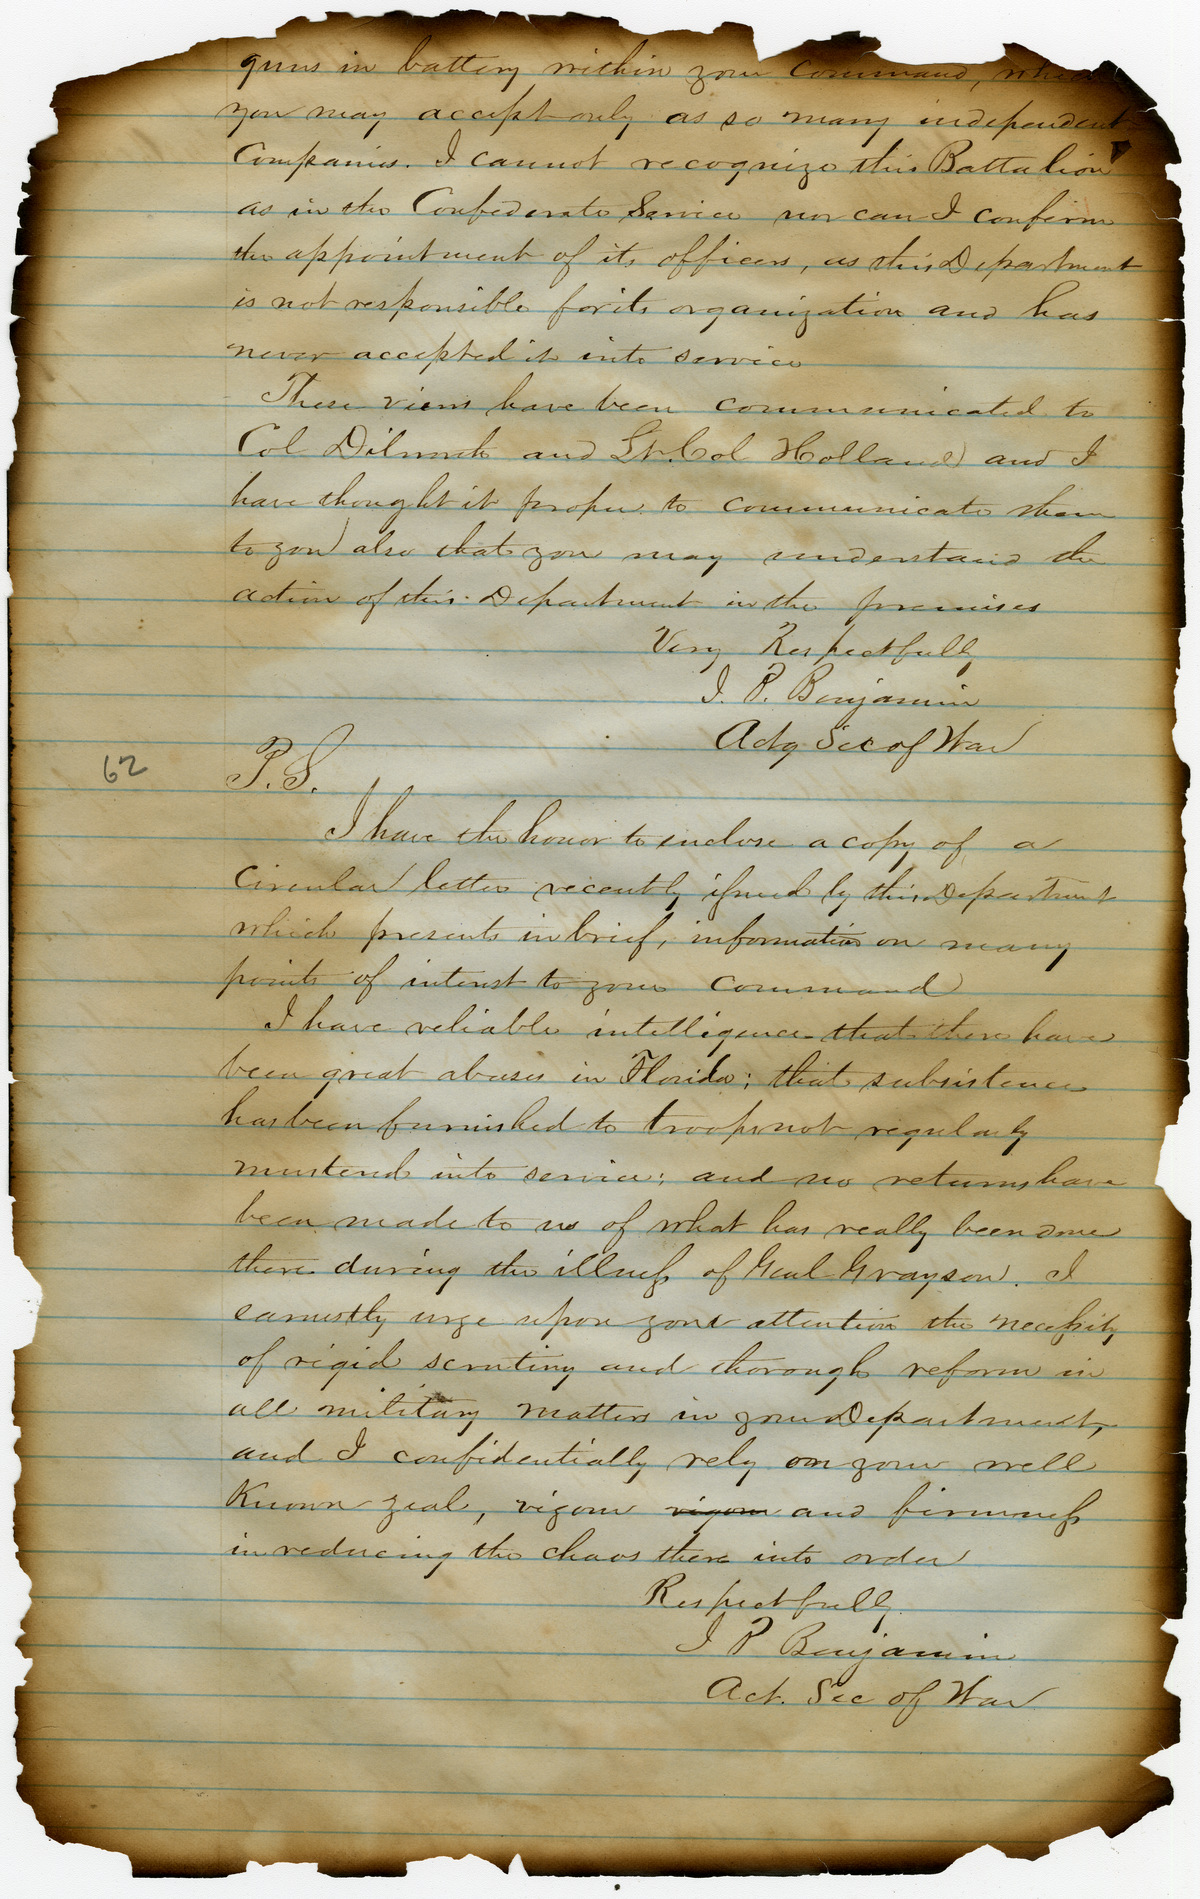 guns in battery within your command, which
you may accept only as so many independent
Companies. I cannot recognize this Battalion
as in the Confederate Service nor can I confirm
the appointment of its officers, as this Department
is not responsible for its organization and has
never accepted it into service
These views have been communicated to
Col Dilwork and Lt. Col Holland and I
have thought it proper to communicate them
to you also that you may understand the
action of this Department in the premises
Very Respectfully
J. P. Benjamin
Actg Sec of War
62
P.S.
I have the honor to enclose a copy of a
Circular letter recently issued by this Department
which presents in brief, information on many
points of interest to your command
I have reliable intelligence that there have
been great abuses in Florida; that subsistence
has been furnished to troops not regularly
mustered into service; and no returns have
been made to us of what has really been done
there during the illness of Genl Grayson. I
earnestly urge upon your attention the necessity
of rigid scrutiny and thorough reform in
all military matters in your Department,
and I confidentially rely on your well
Known zeal, vigour vigour and firmness
in reducing the chaos there into order
Respectfully
J P Benjamin
Act. Sec of War